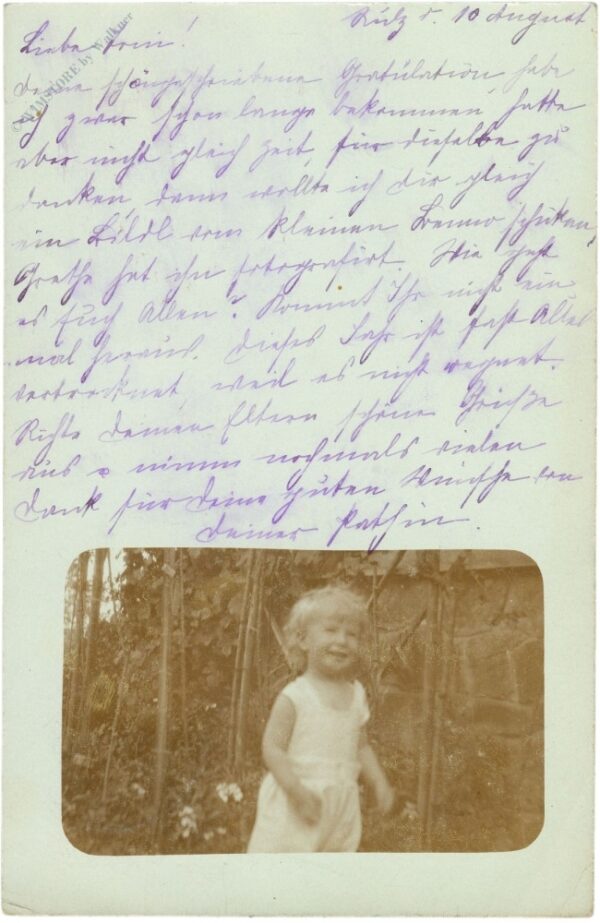 Sulz d. 10 August
Liebe Irin!
Deine schöngeschriebene Gratulation habe
ich zwar schon lange bekommen, hatte
aber nicht gleich Zeit, für dieselbe zu
danken, dann wollte ich dir gleich
ein Bildl vom kleinen Benno schicken,
Grethe hat ihn fotografirt. Wie geht
es Euch Allen? Kommt Ihr nicht ein
mal heraus. Dieses Jahr ist fast Alles
vertrocknet, weil es nicht regnet.
Richte Deinen Eltern schöne Grüße
aus u nimm nochmals vielen
Dank für Deine guten Wünsche von
Deiner Pathin.
by Walkner